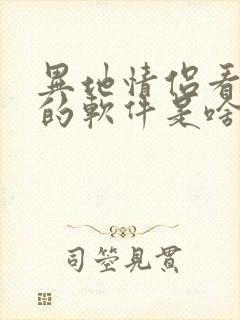 異地情侶看
的軟件是啥
司箜見貫